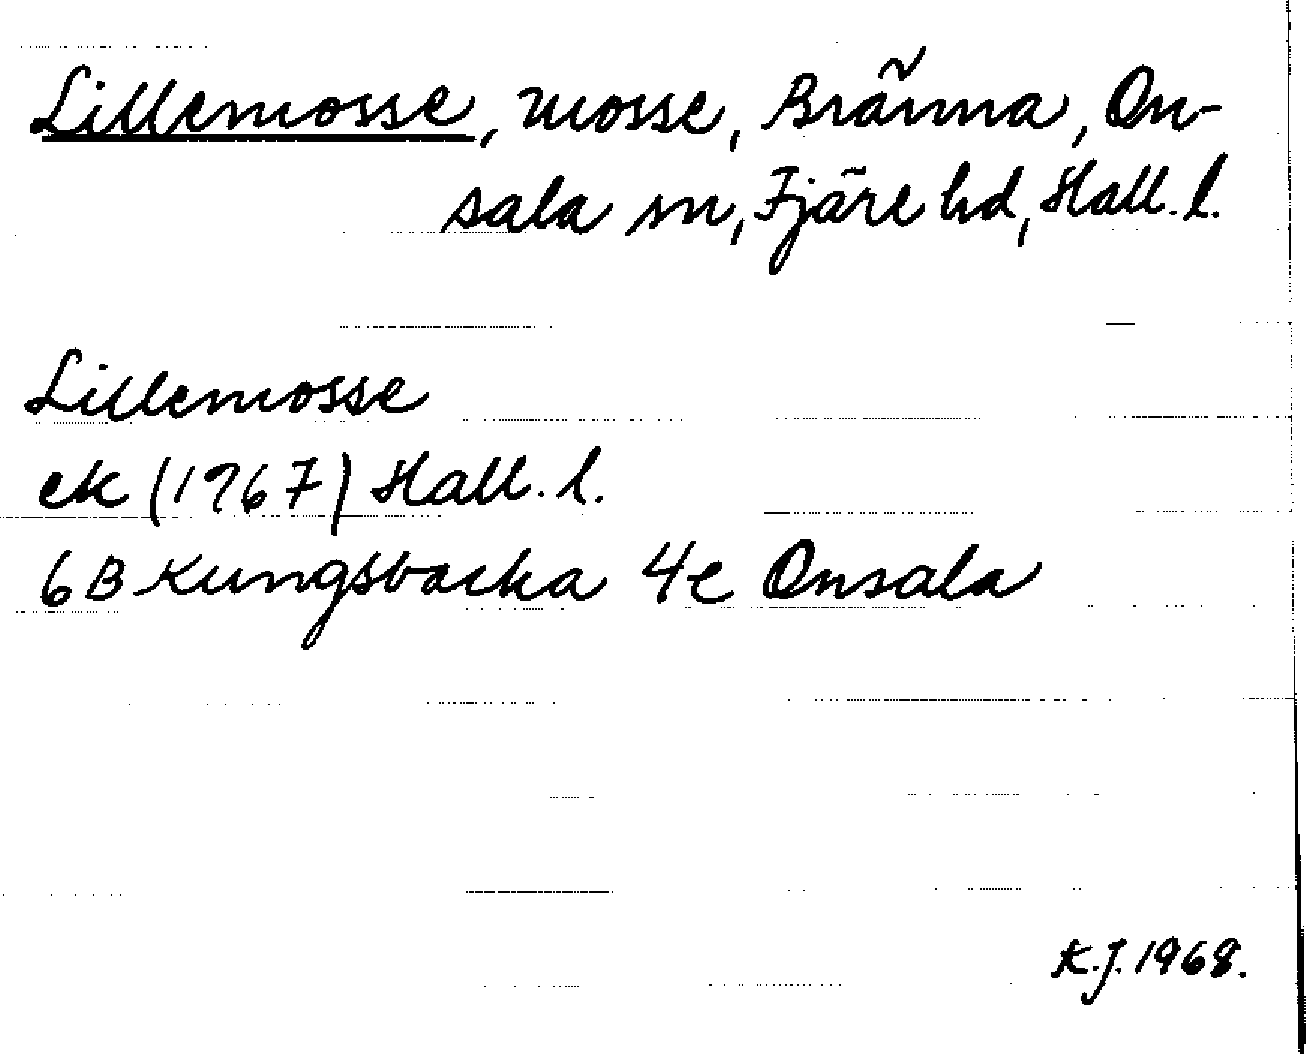 Lillemosse, mosse, Bränna, On-
sala sn, Fjäre hd, Hall. l.
Lillemosse
ek (1967) Hall. l.
6B Kungsbacka 4e Onsala
K.J. 1968.